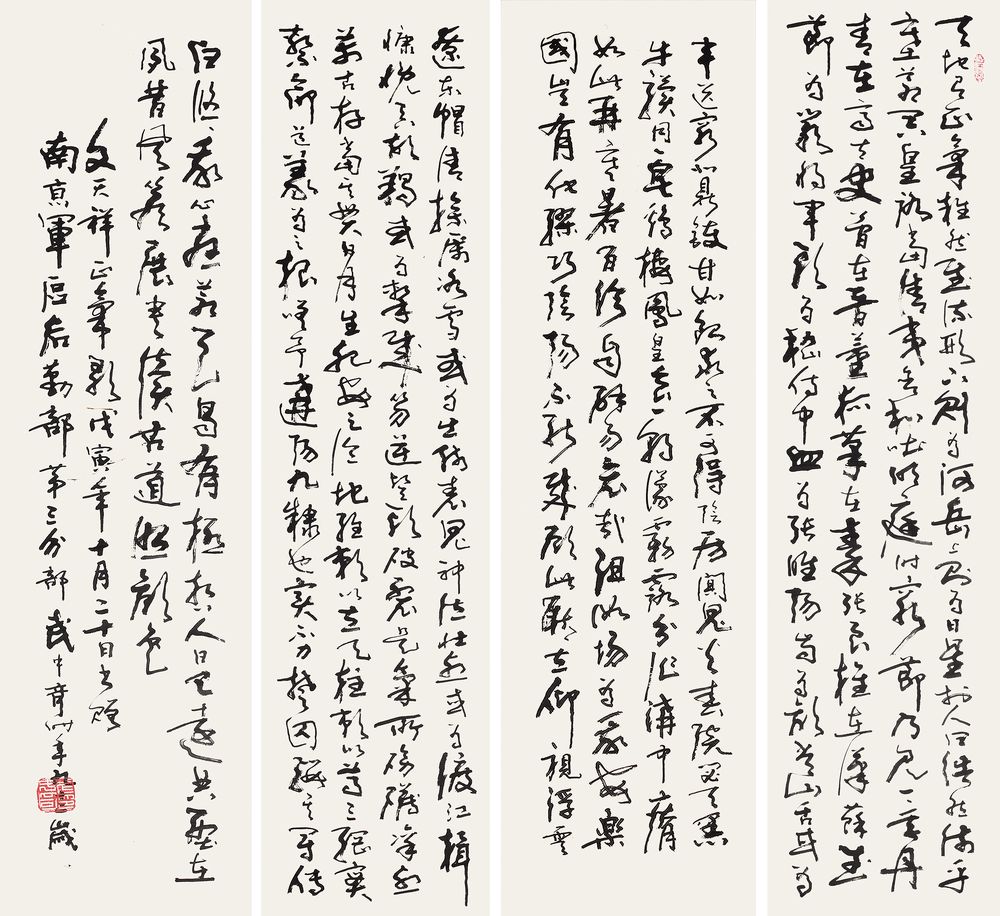 天地有正氣雜然賦流形下則為河岳上則為日星於人曰浩然沛乎
塞蒼冥皇路當清夷含和吐明庭時窮節乃見一一垂丹
青在齊太史簡在晉董狐筆在秦張良椎在漢蘇武
節為嚴將軍頭為嵇侍中血為張睢陽齒為顏常山舌或為
遼東帽清操厲冰雪或為出師表鬼神泣壯烈或為渡江楫
慷慨吞胡羯或為擊賊笏逆豎頭破裂是氣所磅礴凜烈
萬古存當其貫日月生死安足論地維賴以立天柱賴以尊三綱實
繫命道義為之根嗟予遘陽九隸也實不力楚囚纓其冠傳
車送窮北鼎鑊甘如飴求之不可得陰房闃鬼火春院閟天黑
牛驥同一皂雞棲鳳皇食一朝濛霧露分作溝中瘠
如此再寒暑百沴自辟易哀哉沮洳場為我安樂
國豈有他繆巧陰陽不能賊顧此耿耿在仰視浮雲
白悠悠我心悲蒼天曷有極哲人日已遠典型在
夙昔風簷展書讀古道照顏色
文天祥正氣歌戊寅年十月二十日書於
南京軍區后勤部第三分部武中奇時年九十二歲